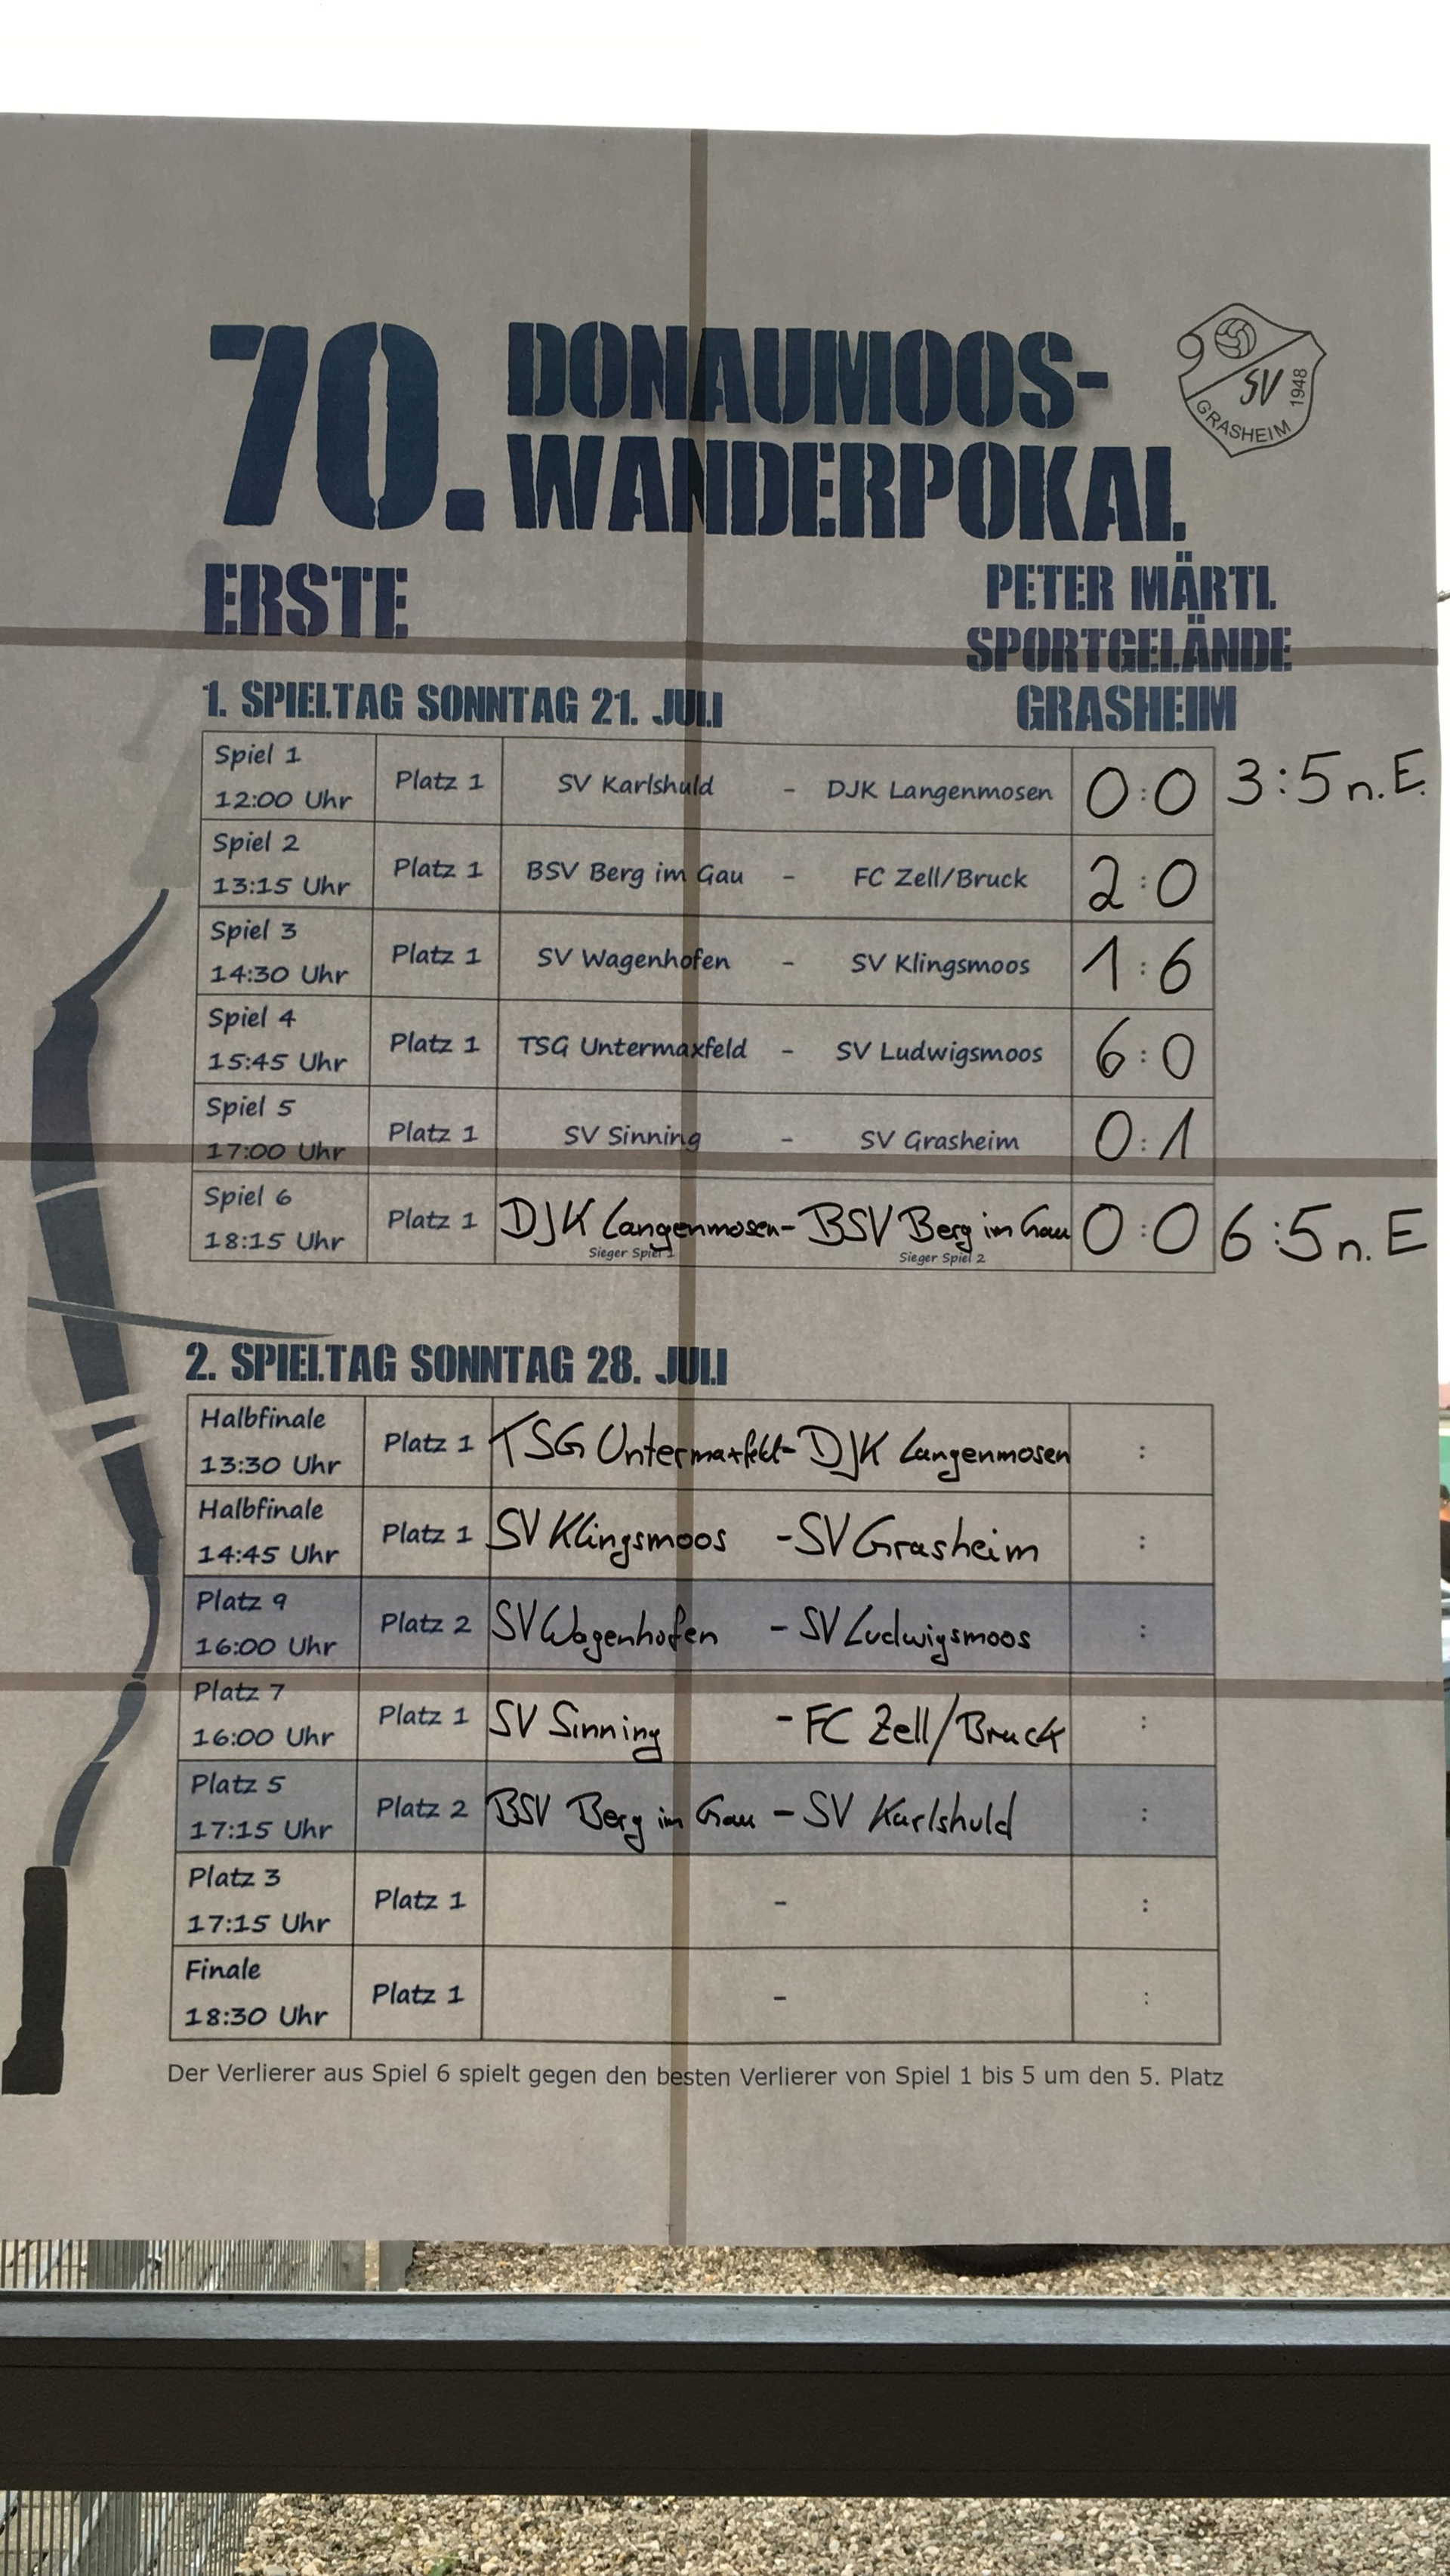 70. DONAUMOOS-
WANDERPOKAL
SV
1948
GRASHEIM
ERSTE
PETER MÄRTL
SPORTGELÄNDE
GRASHEIM
1. SPIELTAG SONNTAG 21. JULI
Spiel 1
12:00 Uhr Platz 1 SV Karlshuld - DJK Langenmosen 0:0 3:5 n.E.
Spiel 2
13:15 Uhr Platz 1 BSV Berg im Gau - FC Zell/Bruck 2:0
Spiel 3
14:30 Uhr Platz 1 SV Wagenhofen - SV Klingsmoos 1:6
Spiel 4
15:45 Uhr Platz 1 TSG Untermaxfeld - SV Ludwigsmoos 6:0
Spiel 5
17:00 Uhr Platz 1 SV Sinning - SV Grasheim 0:1
Spiel 6
18:15 Uhr Platz 1 DJK Langenmosen - BSV Berg im Gau 0:0 6:5 n. E
Sieger Spiel 1 Sieger Spiel 2
2. SPIELTAG SONNTAG 28. JULI
Halbfinale
13:30 Uhr Platz 1 TSG Untermaxfeld - DJK Langenmosen :
Halbfinale
14:45 Uhr Platz 1 SV Klingsmoos - SV Grasheim :
Platz 9
16:00 Uhr Platz 2 SV Wagenhofen - SV Ludwigsmoos :
Platz 7
16:00 Uhr Platz 1 SV Sinning - FC Zell/Bruck :
Platz 5
17:15 Uhr Platz 2 BSV Berg im Gau - SV Karlshuld :
Platz 3
17:15 Uhr Platz 1 - :
Finale
18:30 Uhr Platz 1 - :
Der Verlierer aus Spiel 6 spielt gegen den besten Verlierer von Spiel 1 bis 5 um den 5. Platz